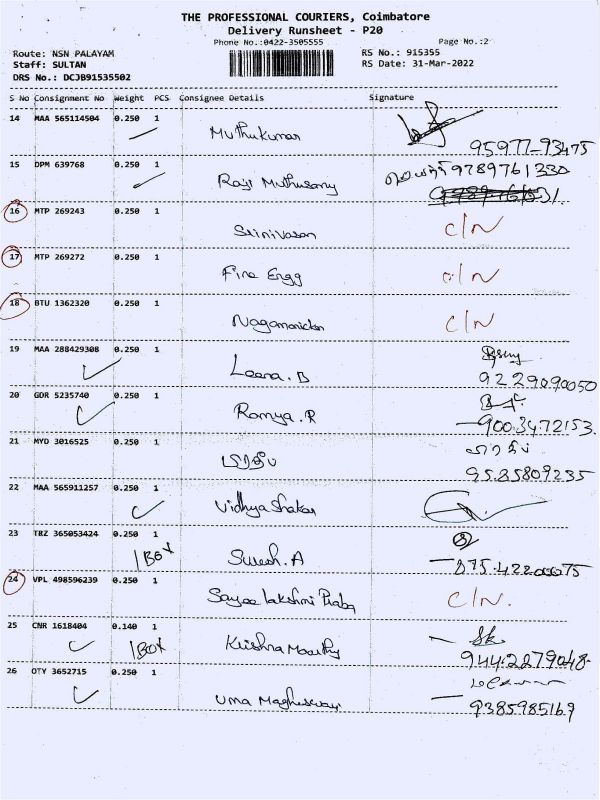 THE PROFESSIONAL COURIERS, Coimbatore
Delivery Runsheet - P20
Phone No.:0422-3505555 Page No.:2
Route: NSN PALAYAM RS No.: 915355
Staff: SULTAN RS Date: 31-Mar-2022
DRS No.: DCJB91535502
S No Consignment No Weight PCS Consignee Details Signature
14 MAA 565114504 0.250 1
Muthukumar 95977-93475
15 DPM 639768 0.250 1 9789761330
Raji Muthusamy
16 MTP 269243 0.250 1
Srinivasan C/N
17 MTP 269272 0.250 1
Fine Engg C/N
18 BTU 1362320 0.250 1
Nagamanickan C/N
19 MAA 288429308 0.250 1
Leena.B 9229090050
20 GDR 5235740 0.250 1
Ramya.R 9003472153.
21 MYD 3016525 0.250 1
பிரதீப் 9585809235
22 MAA 565911257 0.250 1
Vidhya Shakar
23 TRZ 365053424 0.250 1
1 BOX Suresh.A
24 VPL 498596239 0.250 1
Sayee Lakshmi Praba C/N.
25 CNR 1618404 0.140 1
1 BOX Krishna Moorthy 9442279048-
26 OTY 3652715 0.250 1
Uma Magheswari 9385985169